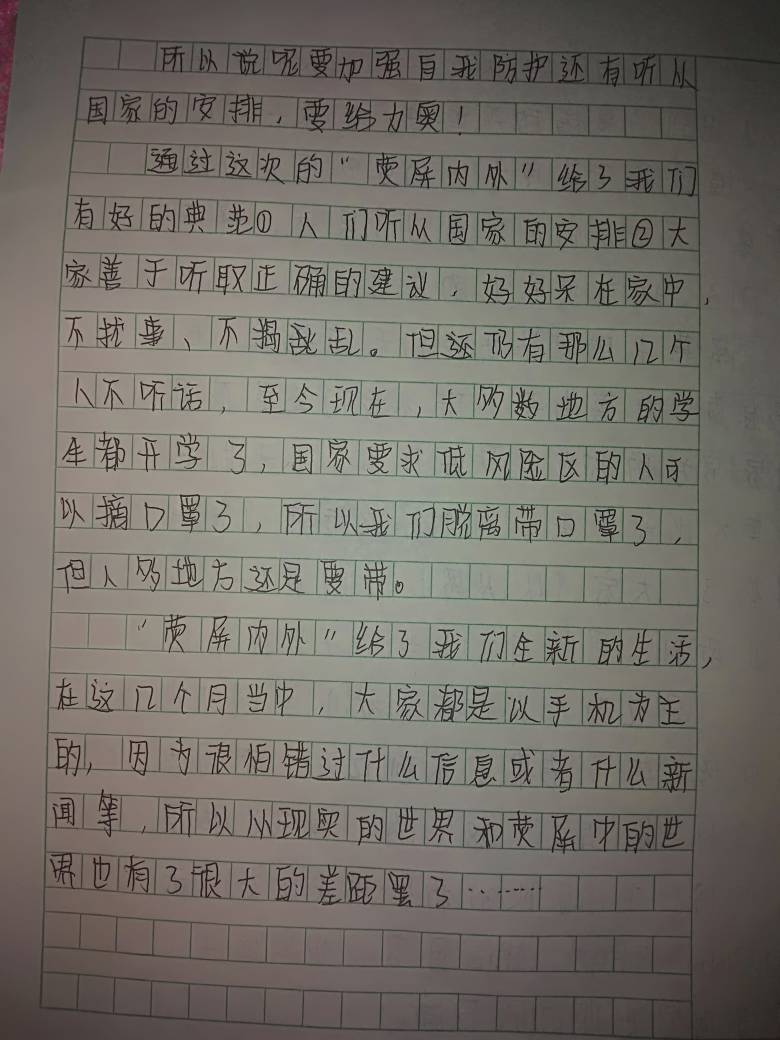 所以说呢要加强自我防护还有听从
国家的安排，要给力奥！
通过这次的“荧屏内外”给了我们
有好的典范①人们听从国家的安排②大
家善于听取正确的建议，好好呆在家中，
不扰事、不捣乱。但还仍有那么几个
人不听话，至今现在，大多数地方的学
生都开学了，国家要求低风险区的人可
以摘口罩了，所以我们脱离带口罩了，
但人多地方还是要带。
“荧屏内外”给了我们全新的生活，
在这几个月当中，大家都是以手机为主
的，因为很怕错过什么信息或者什么新
闻等，所以从现实的世界和荧屏中的世
界也有了很大的差距罢了……